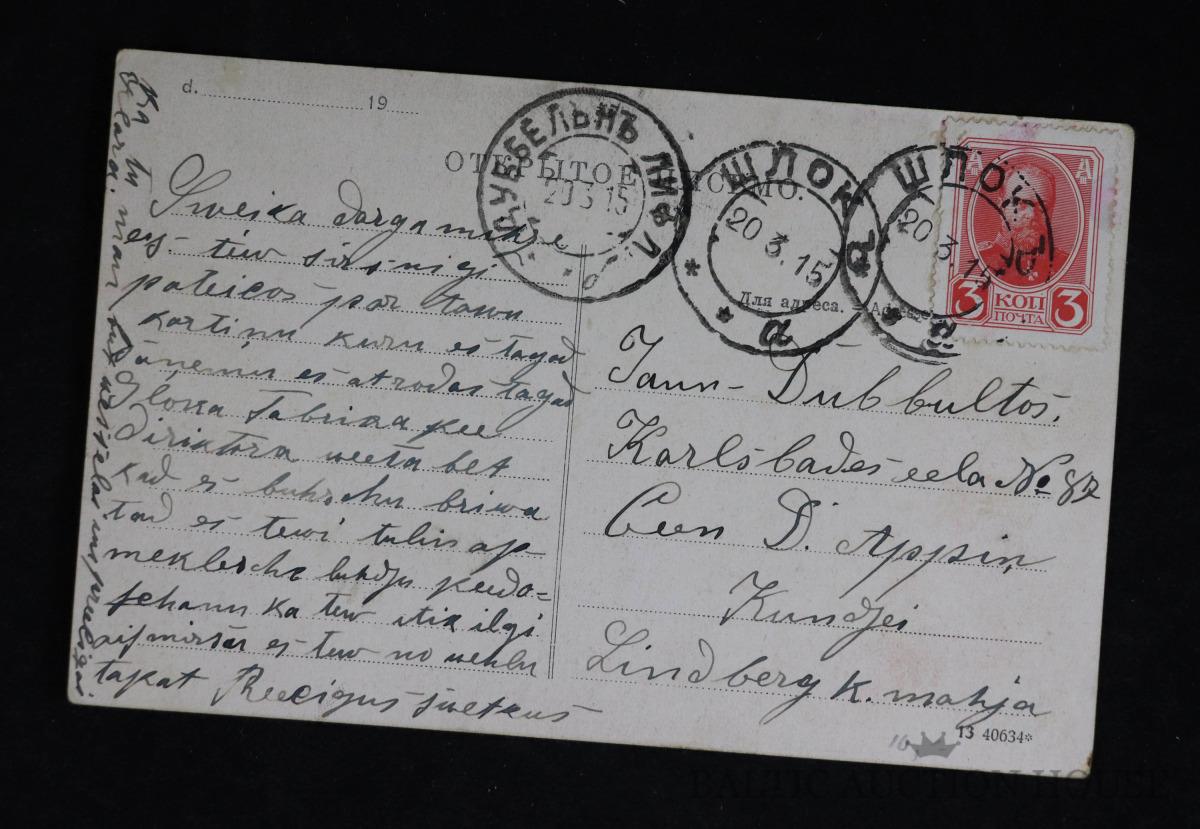 d. 19
ОТКРЫТОЕ ПИСЬМО.
ДУББЕЛЬНЪ ЛИФЛ
20 3 15
ШЛОКЪ
20 3.15
а
ШЛОКЪ
20 3.15
а
3 КОП 3
ПОЧТА
Для адреса. — Adresse
Sweika darga
es tew sirsnigi
pateicos par tawu
kartinu kuru es tagad
saņemu es atrodos tagad
Sloka fabrika pee
Diriktora weeta bet
kad es buhschu briwa
tad es tewi tulin ap-
meklesche luhdzu peedo-
schanu ka tew itik ilgi
es tew no wehlu
takat Preecigus swetkus
Jaun-Dubbultos.
Karlsbades eela No 82
Cien D. Appin
Kundzei
Lindberg k. mahja
13 40634*
BALTIC AUCTION HOUSE